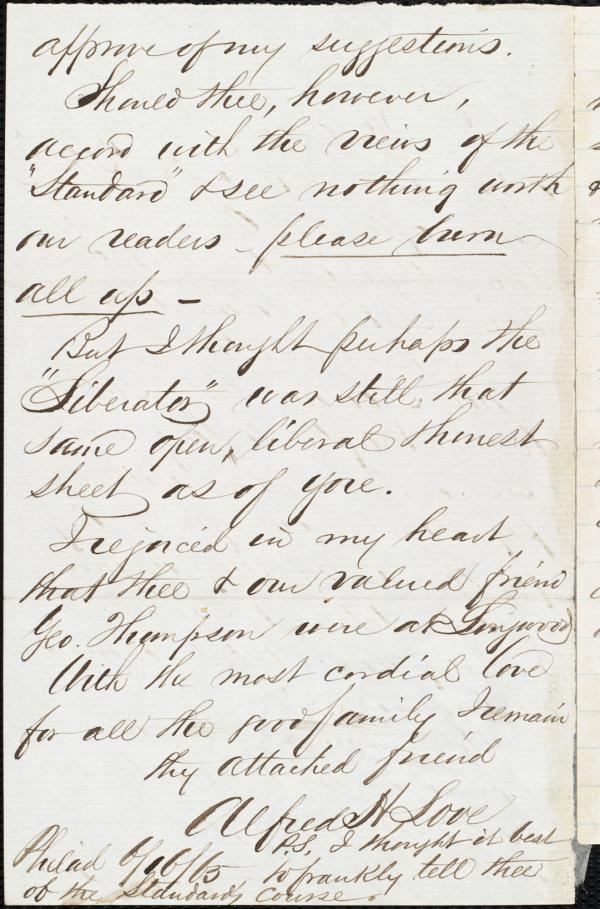 approve of my suggestions.
Should thee, however,
accord with the views of the
"Standard" & see nothing worth
our readers - please burn
all up -
But I thought perhaps the
"Liberator" was still that
same open, liberal & honest
sheet as of yore.
I rejoiced in my heart
that thee & our valued friend
Geo. Thompson were at Longwood
With the most cordial love
for all the good family I remain
thy attached friend
Alfred H Love
P.S. I thought it best
Philad to frankly tell thee
of the Standard's course.